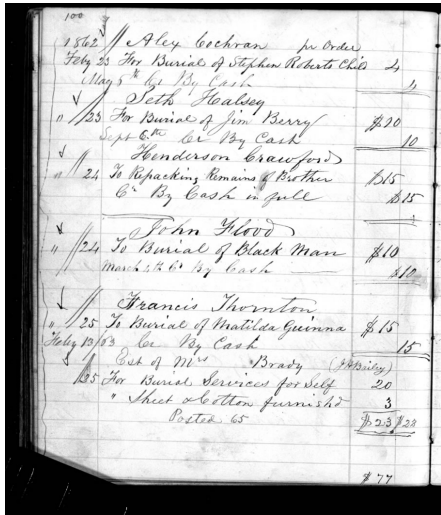 100
1862 Alex Cochran pr Order
Feby 23 For Burial of Stephen Roberts Child 4
May 8th Cr By Cash 4
Seth Halsey
" 23 For Burial of Jim Berry $20
Sept 6th Cr By Cash 10
Henderson Crawford
" 24 To Repacking Remains of Brother $15
Cr By Cash in full $15
John Flood
" 24 To Burial of Black Man $10
March 4th Cr By Cash $10
Francis Thornton
" 25 To Burial of Matilda Guinna $15
Feby 13/63 Cr By Cash 15
Est of Mrs Brady
25 For Burial Services for Self 20
" Sheet & Cotton furnishd 3
Posted 65 $23 $28
$77